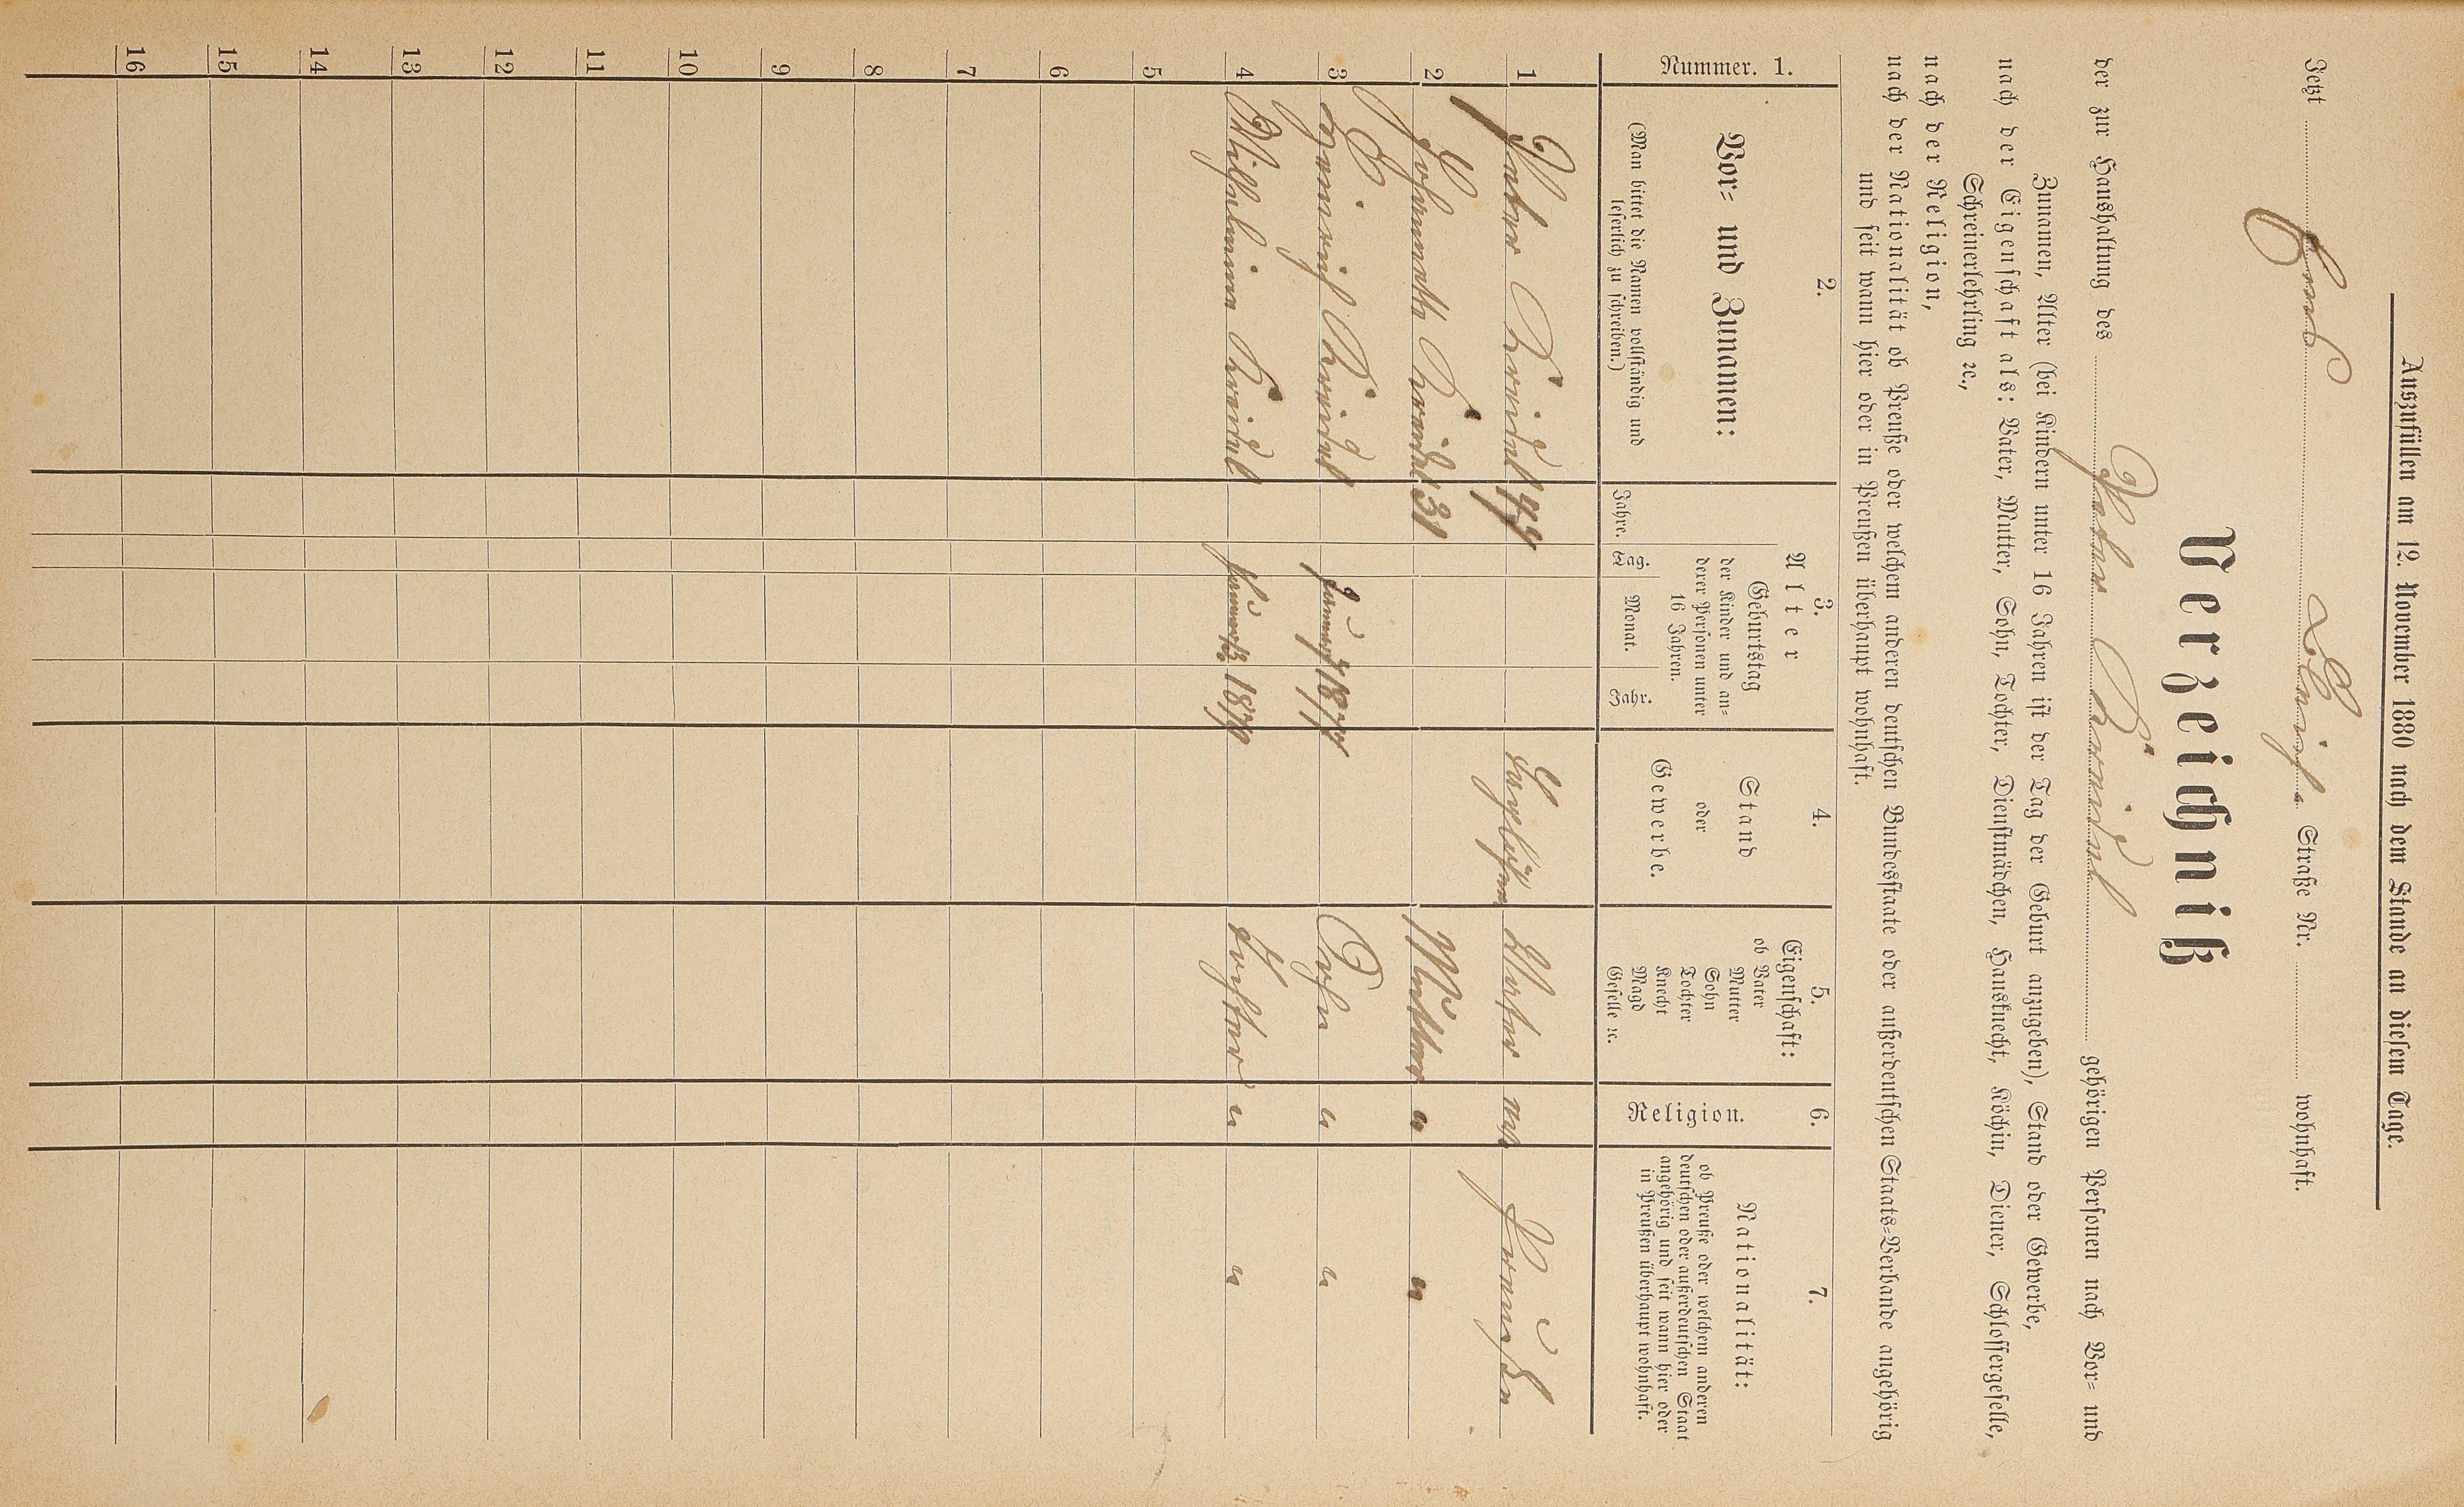 Auszufüllen am 12. November 1880 nach dem Stande an diesem Tage.
Jetzt Straße Nr. wohnhaft.
Verzeichniß
der zur Haushaltung des Peter Kreidel gehörigen Personen nach Vor- und
Zunamen, Alter (bei Kindern unter 16 Jahren ist der Tag der Geburt anzugeben), Stand oder Gewerbe,
nach der Eigenschaft als: Vater, Mutter, Sohn, Tochter, Dienstmädchen, Hausknecht, Köchin, Diener, Schlossergeselle,
Schreinerlehrling ꝛc.,
nach der Religion,
nach der Nationalität ob Preuße oder welchem anderen deutschen Bundesstaate oder außerdeutschen Staats-Verbande angehörig
und seit wann hier oder in Preußen überhaupt wohnhaft.
Nummer. 1.
2.
Vor- und Zunamen:
(Man bittet die Namen vollständig und
leserlich zu schreiben.)
3.
Alter
Jahre.
Geburtstag
der Kinder und an-
derer Personen unter
16 Jahren.
Tag. Monat. Jahr.
4.
Stand
oder
Gewerbe.
5.
Eigenschaft:
ob Vater
Mutter
Sohn
Tochter
Knecht
Magd
Geselle ꝛc.
6.
Religion.
7.
Nationalität:
ob Preuße oder welchem anderen
deutschen oder außerdeutschen Staat
angehörig und seit wann hier oder
in Preußen überhaupt wohnhaft.
1 Peter Kreidel 44 Vater Preuße
2 Johannette Kreidel 31 Mutter "
3 Heinrich Kreidel 1877 " "
4 Wilhelmine Kreidel 1879 Tochter " "
5
6
7
8
9
10
11
12
13
14
15
16